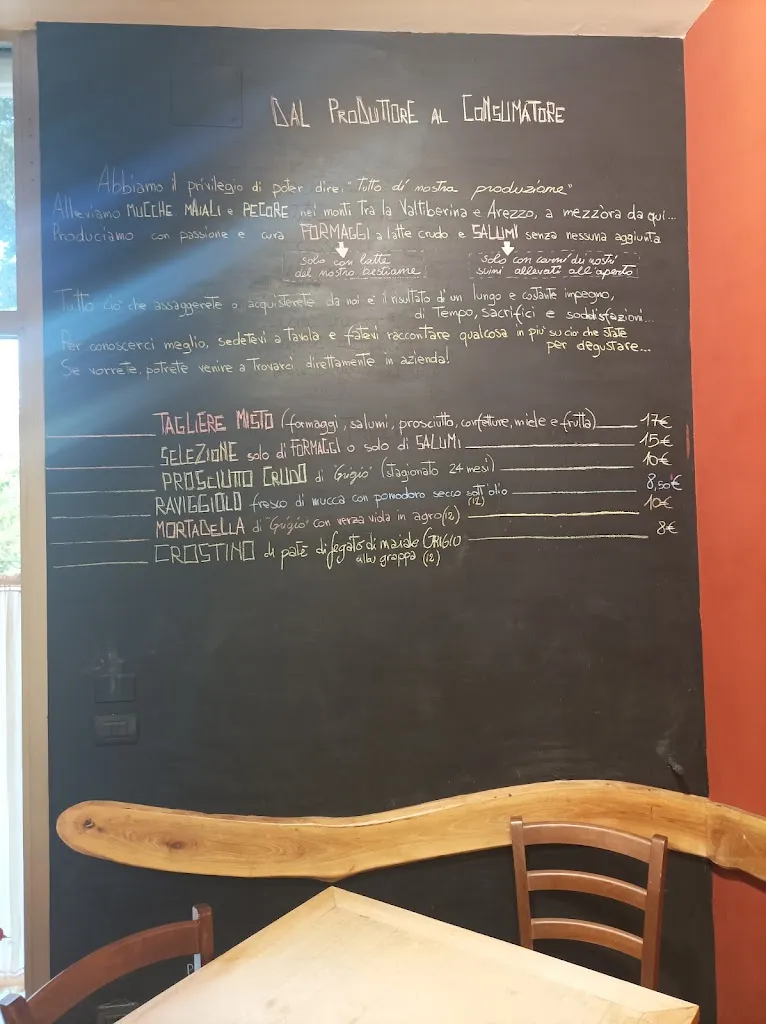 DAL PRODUTTORE AL CONSUMATORE
Abbiamo il privilegio di poter dire: "Tutto di nostra produzione"
Alleviamo MUCCHE MAIALI e PECORE nei monti Tra la Valtiberina e Arezzo, a mezz'ora da qui...
Produciamo con passione e cura FORMAGGI a latte crudo e SALUMI senza nessuna aggiunta
solo con latte del nostro bestiame
solo con carni dei nostri suini allevati all'aperto
Tutto ciò che assaggerete o acquisterete da noi è il risultato di un lungo e costante impegno,
di Tempo, sacrifici e soddisfazioni...
Per conoscerci meglio, sedetevi a Tavola e fatevi raccontare qualcosa in più su ciò che state
per degustare...
Se vorrete, potrete venire a Trovarci direttamente in azienda!
TAGLIERE MISTO (formaggi, salumi, prosciutto, confetture, miele e frutta) 17€
SELEZIONE solo di FORMAGGI o solo di SALUMI 15€
PROSCIUTTO CRUDO di "Grigio" (stagionato 24 mesi) 10€
RAVIGGIOLO fresco di mucca con pomodoro secco sott'olio (12) 8,50€
MORTADELLA di "Grigio" con verza viola in agro (12) 10€
CROSTINO di patè di fegato di maiale GRIGIO 8€
alla grappa (12)